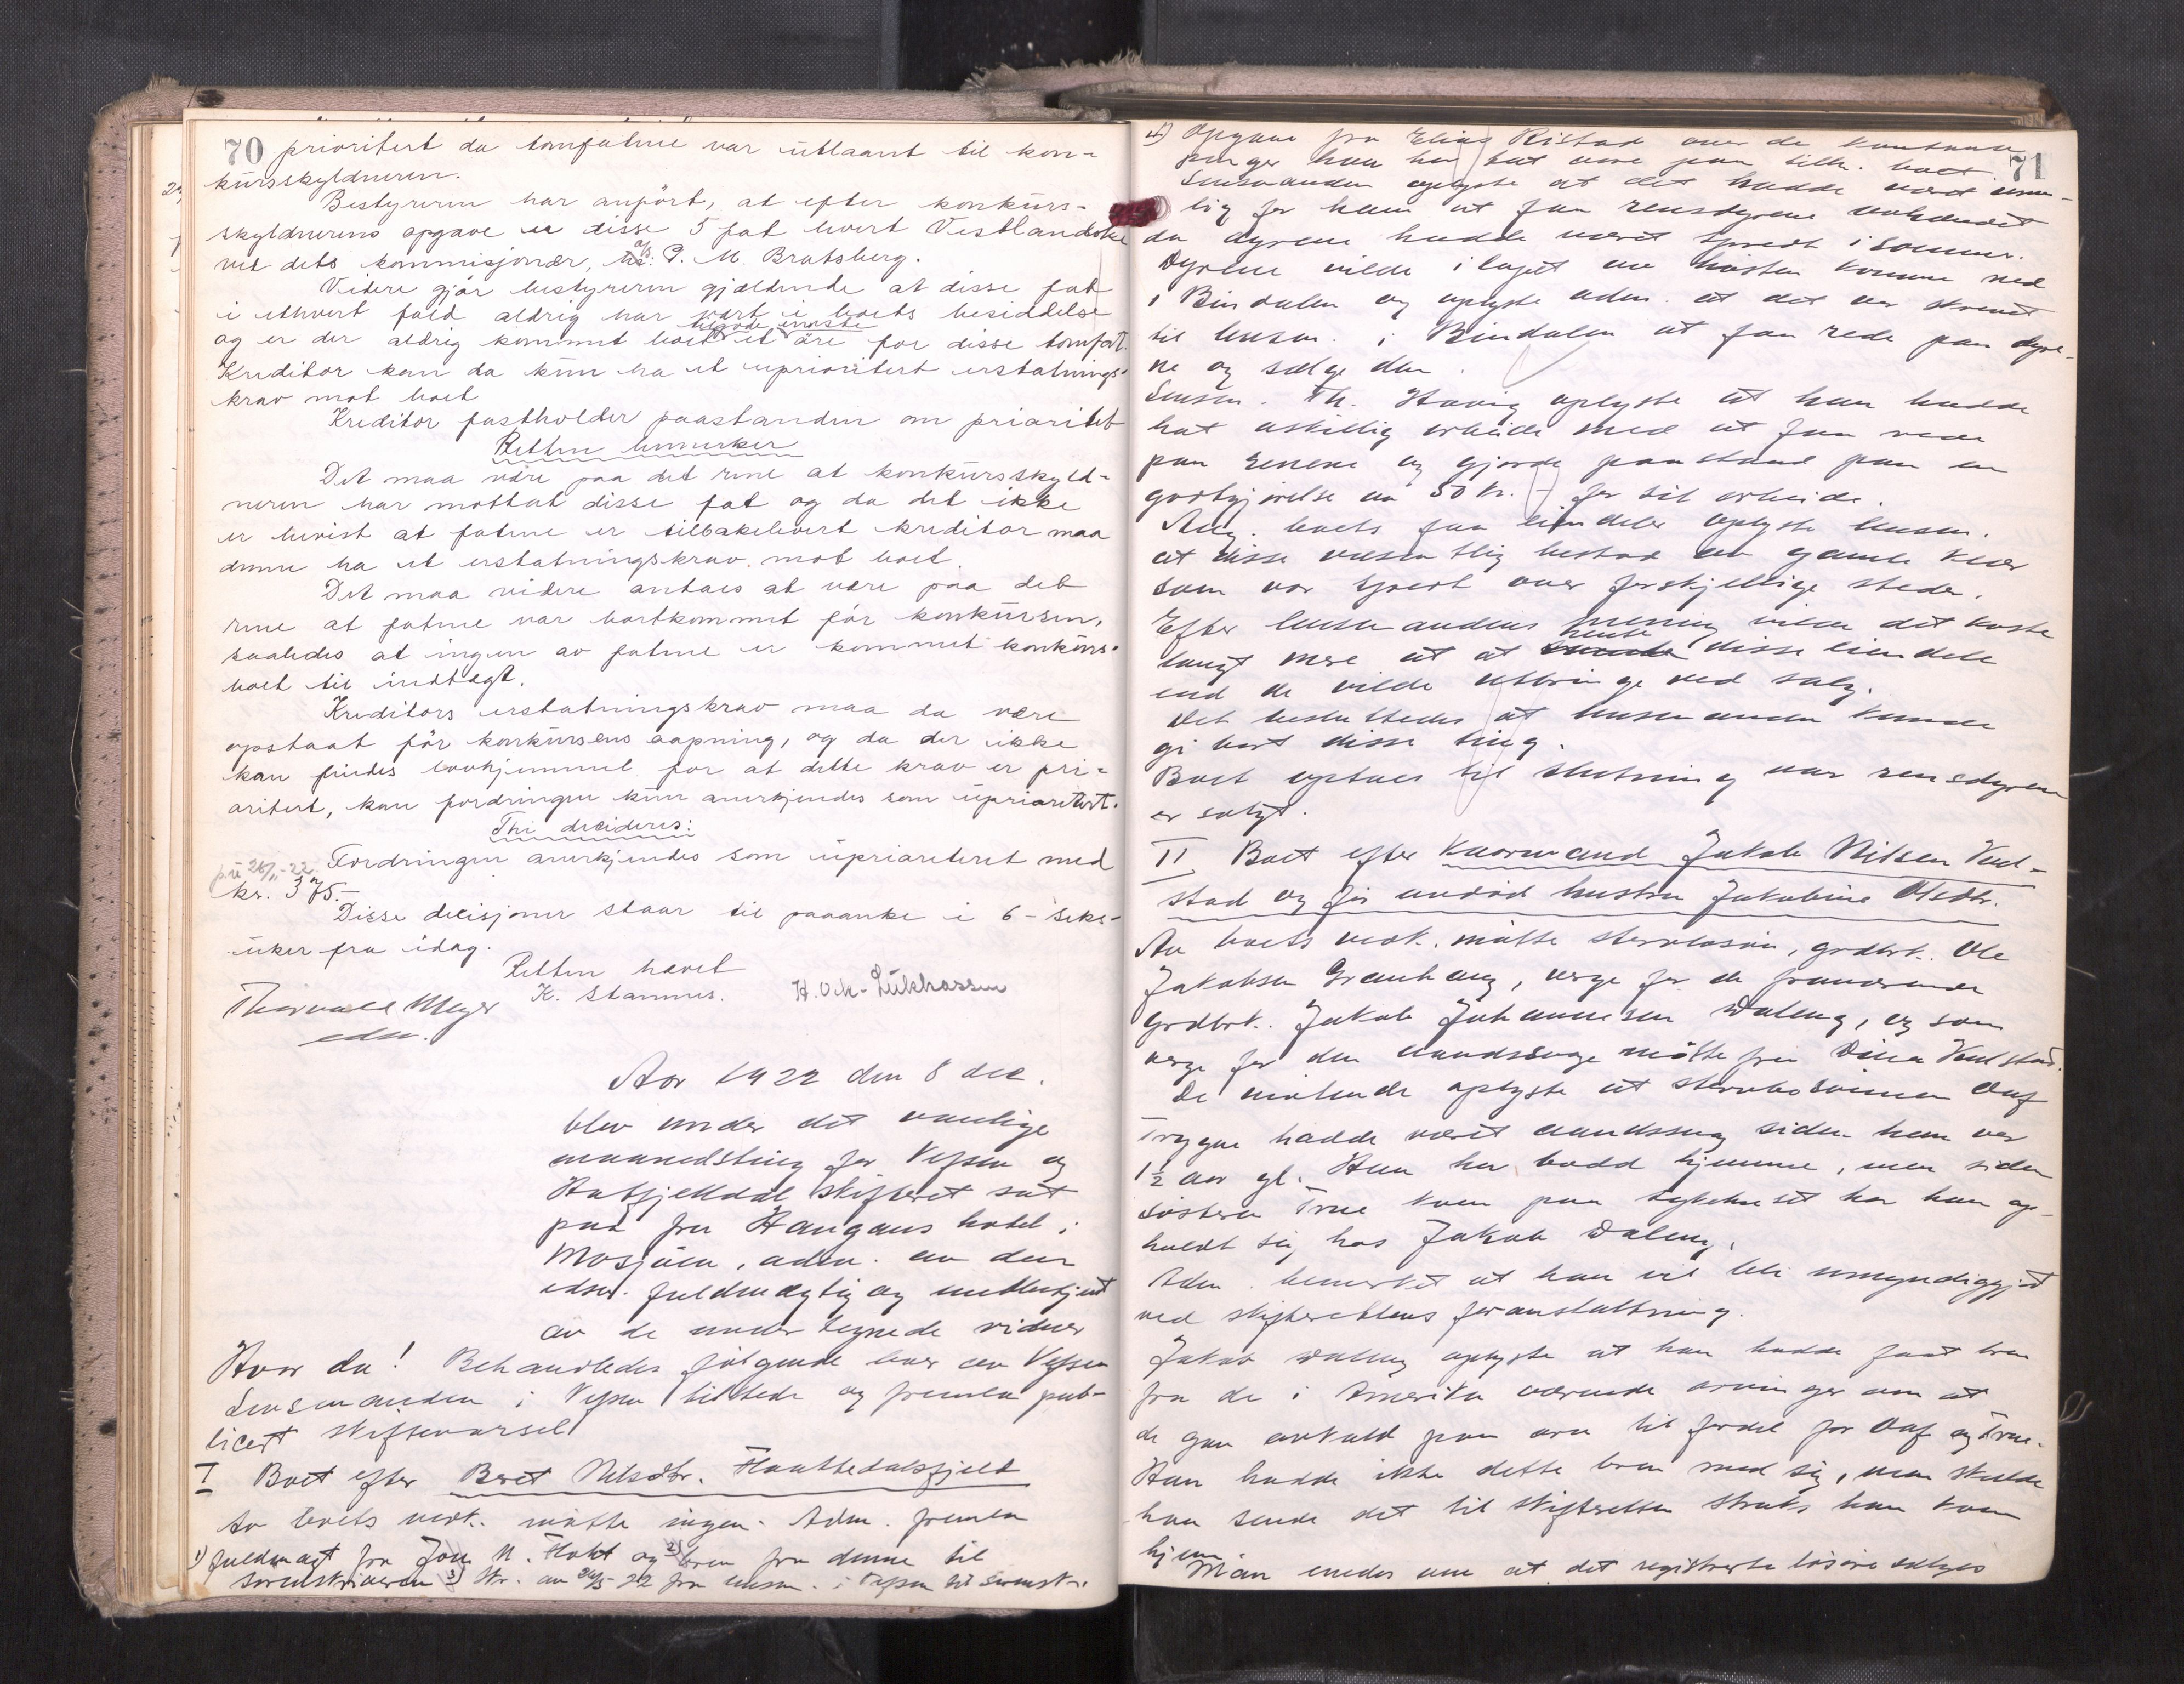 70 prioritert da tomfatene var utlaant til kon-
kursskyldneren.
Bestyreren har anført, at efter konkurs-
skyldnerens opgave er disse 5 fat levert Vestlandske
ved dets kommisjonær, a/s P. M. Bratsberg.
Videre gjør bestyreren gjældende at disse fat
i ethvert fald aldrig har vært i boets besiddelse
og er der aldrig kommet boet tilgode eneste et øre for disse tomfat.
Kreditor kan da kun ha et uprioritert erstatnings-
krav mot boet
Kreditor fastholder paastanden om prioritet
Retten bemerker
Det maa være paa det rene at konkursskyld-
neren har mottat disse fat og da det ikke
er bevist at fatene er tilbakelevert kreditor maa
denne ha et erstatningskrav mot boet.
Det maa videre antaes at være paa det
rene at fatene var bortkommet før konkursen,
saaledes at ingen av fatene er kommet konkurs-
boet til indtægt.
Kreditors erstatningskrav maa da være
opstaat før konkursens aapning, og da der ikke
kan findes lovhjemmel for at dette krav er pri-
oritert, kan fordringen kun anerkjendes som uprioritert.
Thi decideres:
Fordringen anerkjendes som uprioriteret med
kr. 375.-
Disse decisjoner staar til paaanke i 6 - seks -
uker fra idag.
Retten hævet
Thorvald Meyer K. Stamnes.
edsv.
Aar 1922 den 8 dec.
blev under det vanlige
maanedsting for Vefsn og
Hatfjelldal skifteret sat
paa fru Haugans hotel i
Mosjøen, adm. av den
edsv. fuldmægtig og medbetjent
av de undertegnede vidner
Hvor da! Behandledes følgende boer av Vefsn
Lensmanden i Vefsn tilstede og fremla pub-
licert skiftevarsel
I Boet efter Beret Nilsdtr.
Av boets vedk. møtte ingen. Adm. fremla
1) fuldmagt fra Jon N. og 2) brev fra denne til
sorenskriveren 3) Skr. av 24/5-22 fra lensm. i Vefsn til sorenskr.
71
4) Opgave fra Elias Ristad over de kontante
penger han har hat
Lensmanden oplyste at det hadde været umu-
lig for ham at faa rensdyrene avhændet
da dyrene hadde været spredt i sommer.
Dyrene vilde i løpet av høsten komme ned
i Bindalen og oplyste adm. at det var skrevet
til lensm. i Bindalen at faa rede paa dyre-
ne og sælge dem.
Lensm. Th. Havig oplyste at han hadde
hat adskillig arbeide med at faa rede
paa renene og gjorde paastand paa en
godtgjørelse av 50 kr. - for sit arbeide.
Ang. boets faa eiendeler oplyste lensm.
at disse væsentlig bestod av gamle klær
som var spredt over forskjellige steder.
Efter lensmandens mening vilde det koste
langt mere at at hente disse eiendele
end de vilde utbringe ved salg.
Det besluttedes at lensmanden kunde
gi bort disse ting.
Boet optaes til slutning naar rensdyrene
er solgt.
II Boet efter kaarmand Jakob Nilsen Ved-
stad og før avdød hustru Jakobine Olsdtr.
Av boets vedk. møtte stervbosøn, grdbrk. Ole
Jakobsen Granhaug, verge for de fraværende
grdbrk. Jakob Johannesen Daleng, og som
verge for den aandssvage møtte fru Dina Vedstad.
De møtende oplyste at stervbosønnen Oluf
Trygve hadde været aandssvag siden han var
1½ aar gl. Han har bodd hjemme, men siden
søsteren Trine kom paa sykehuset har han op-
holdt sig hos Jakob Daleng.
Adm. bemerket at han vil bli umyndiggjort
ved skifterettens foranstaltning.
Jakob Daleng oplyste at han hadde faat brev
fra de i Amerika værende arvinger om at
de gav avkald paa arv til fordel for Oluf og Trine.
Han hadde ikke dette brev med sig, men skulde
han sende det til skifteretten straks han kom
hjem.
Man enedes om at det registrerte løsøre selges